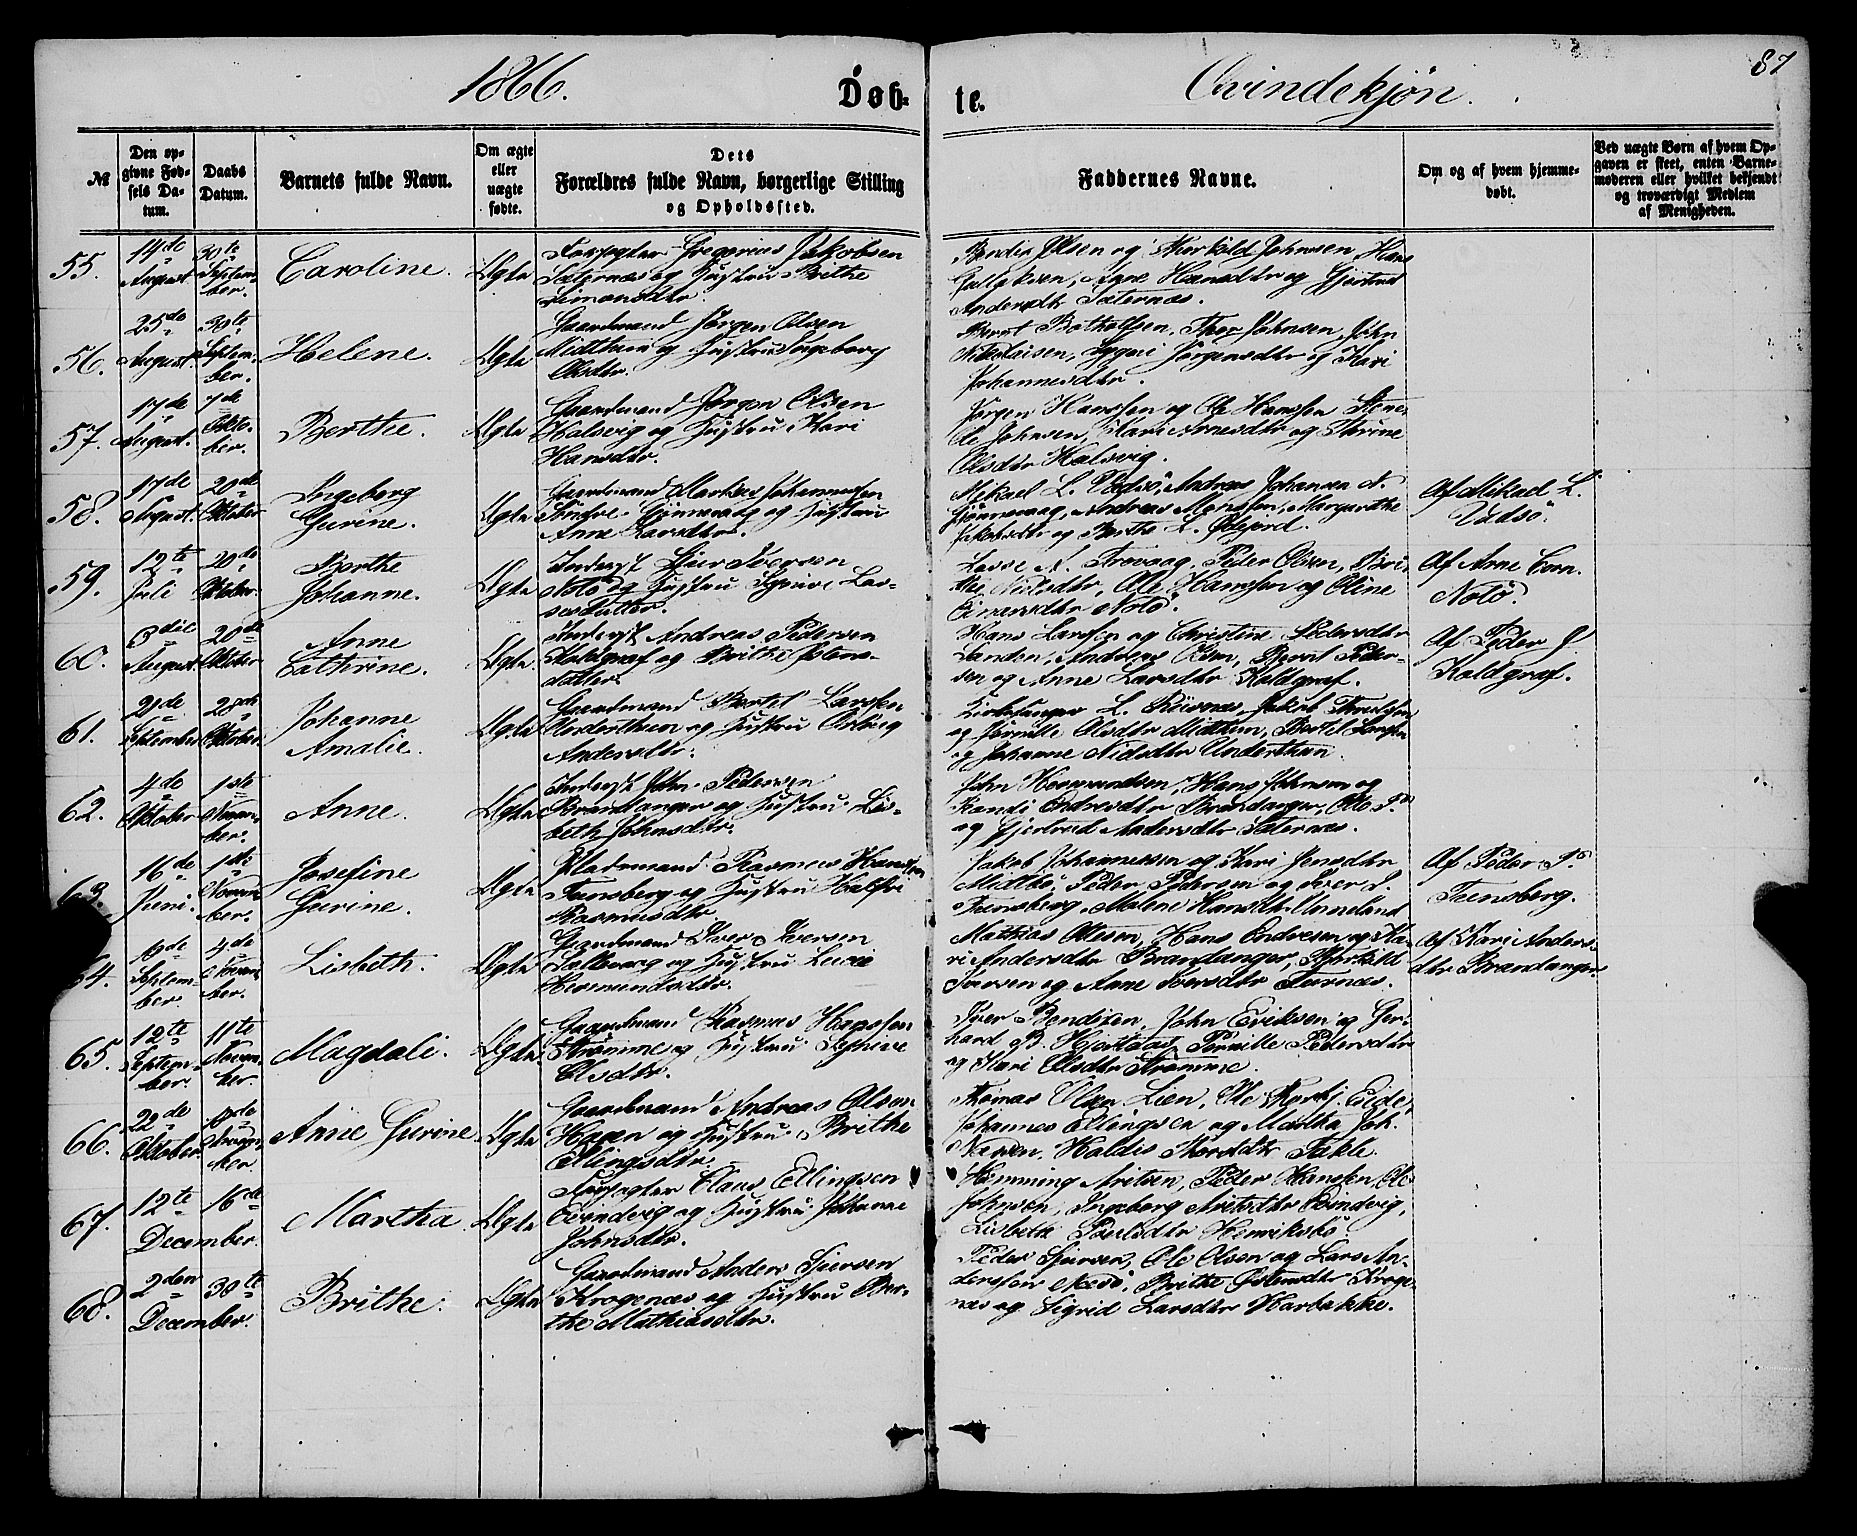 1866.
Døb-
te.
Qvindekjøn.
87
№
Den op-
givne Fød-
sels Da-
tum.
Daabs
Datum.
Barnets fulde Navn.
Om ægte
eller
uægte
fødte.
Dets
Forældres fulde Navn, borgerlige Stilling
og Opholdssted.
Faddernes Navne.
Om og af hvem hjemme-
døbt.
Ved uægte Børn af hvem Op-
gaven er skeet, enten Barne-
moderen eller hvilket bekjendt
og troværdigt Medlem
af Menigheden.
55.
14de
August
30te
Septem-
ber.
Caroline.
Ægte
Gregorius Jakobsen
Sæternæs og Hustru Brithe
Simonsdtr.
Olsen og Therkild Johnsen, Hans
Hansdtr og Gjertrud
Andersdtr Sæternæs.
56.
25de
August.
30te
Septem-
ber.
Helene.
Ægte
Gaardmand Jørgen Olsen
Midthun og Hustru Ingeborg
Olsdtr.
Bernt Botholfsen, Thor Johnsen, John
Nikolaisen, Jørgensdtr og Kari
Johannesdtr.
57.
17de
August.
7de
Okto-
ber.
Berthe.
Ægte
Gaardmand Jørgen Olsen
Halsvig og Hustru Kari
Hansdtr.
Jørgen Hanssen og Ole Hanssen
Ole Johnsen, Kari Arnesdtr og Thrine
Olsdtr Halsvig.
58.
17de
August.
20de
Oktober
Ingeborg
Gurine.
Ægte
Gaardmand Markus Johannessen
og Hustru
Anne Larsdtr.
Mikael L. Vadsö, Andreas Johansen
Andreas Monssen, Margarethe
Jakobsdtr og Berthe L.
Af Mikael L.
Vadsö.
59.
12te
Juli
20de
Oktober.
Berthe
Johanne.
Ægte
Inderst Iversen
Notö og Hustru Las-
sesdatter.
Lasse N. Peder Olsen, Bri-
the Nilsdtr, Ole Hanssen og Oline
Einarsdtr Notö.
Af Arne Corn.
Notö.
60.
3die
August
20de
Oktober
Anne
Cathrine.
Ægte.
Inderst Andreas Pedersen
Koldgraf og Brithe
datter.
Hans Larssen og Christine Pedersdtr
Sanden, Andreas Olsen, Bernt Peder-
sen og Anne Larsdtr Koldgraf.
Af Peder J.
Koldgraf.
61.
21de
September
28de
Oktober.
Johanne
Amalie.
Ægte
Gaardmand Bertel Larssen
Underthun og Hustru
Andersdtr.
Kirkesanger L. Jakob
og Pernille Olsdtr Midthun, Bertel Larssen
og Johanne Nilsdtr Underthun.
62.
4de
Oktober
1ste
Novem-
ber.
Anne.
Ægte
Inderst John Pedersen
Brandanger og Hustru Lis-
beth Johnsdtr.
John Hermundsen, Hans Johnsen og
Randi Endresdtr Brandanger, Ole
og Gjertrud Andersdtr Sæternæs.
63.
16de
Juni.
1ste
Novem-
ber.
Josefine
Gurine.
Ægte
Pladsmand Rasmus Hanssen
Tænsberg og Hustru
Rasmusdtr.
Jakob Johannessen og Kari Jensdtr
Midtbö, Peder Pedersen og Iver
Tænsberg, Malene Hansdtr Unneland
Af Peder
Tænsberg.
64.
Septem-
ber.
4de
Novem-
ber.
Lisbeth.
Ægte
Gaardmand Iver Iversen
og Hustru Lucie
Hermundsdtr.
Mathias Olsen, Hans Endresen og Ka-
ri Andersdtr Brandanger, Therkild
Iversen og Anne Iversdtr Furnæs.
Af Kari Anders-
dtr Brandanger.
65.
12te
Septem-
ber.
11te
Novem-
ber.
Magdali.
Ægte
Gaardmand Rasmus Hanssen
Strømme og Hustru
Olsdtr.
Iver Bendixen, John Eriksen og Ger-
hard B. Pernille Pedersdtr
og Kari Olsdtr Strømme.
66.
22de
Oktober.
Novem-
ber
Anne Gurine.
Ægte
Gaardmand Andreas Olsen
Hagen og Hustru Brithe
Ellingsdtr.
Thomas Olsen Lien, Ole Eide,
Johannes Ellingsen og Martha Joh.
Haldis Takle.
67.
12te
16de
December.
Martha.
Ægte
Claus Ellingsen
Evindvig og Hustru Johanne
Johnsdtr.
Hemming Peder Hanssen, Ole
Johnsen, Ingeborg Evindvig,
Lisbeth Poulsdtr Henriksbö.
68.
2den
30te
December.
Brithe.
Ægte
Gaardmand Anders Sjursen
Krogenæs og Hustru Ber-
the Mathiasdtr.
Peder Sjursen, Ole Olsen og Lars An-
derssön Brithe Kroge-
næs og Sigrid Larsdtr Harbakke.